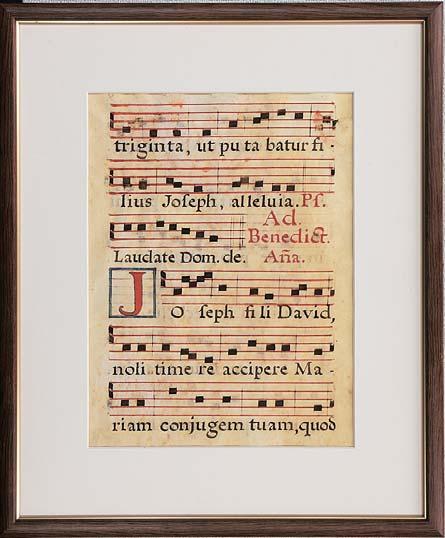 triginta, ut pu ta batur fi -
lius Joseph, alleluia. Ps.
Ad.
Benedict.
Laudate Dom. de. Aña.
J
O seph fi li David,
noli time re accipere Ma -
riam conjugem tuam, quod